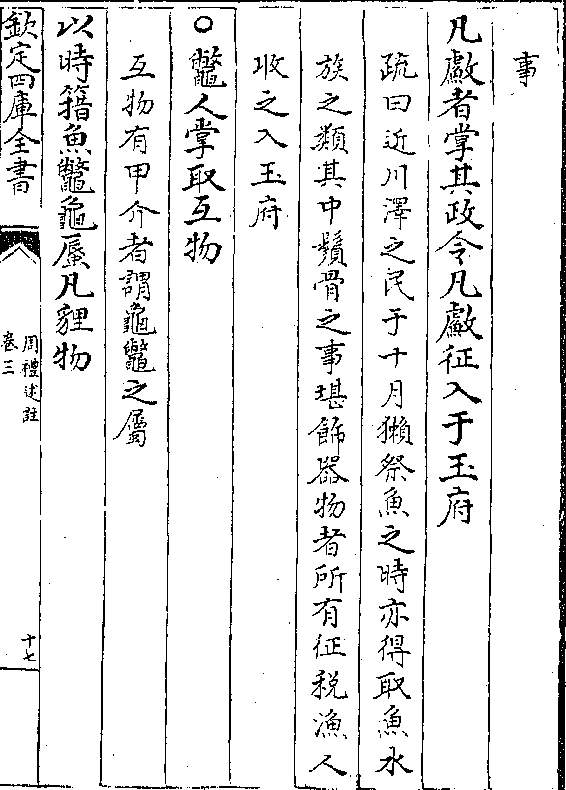 事
凡䱷者掌其政令凡䱷征入于玉府
疏曰近川澤之民于十月獺祭魚之時亦得取魚水
族之類其中鬚骨之事堪飾器物者所有征稅漁人
收之入玉府
○鼈人掌取互物
互物有甲介者謂龜鼈之屬
以時簎魚鼈龜蜃凡貍物
欽定四庫全書
周禮述註
卷三
十七